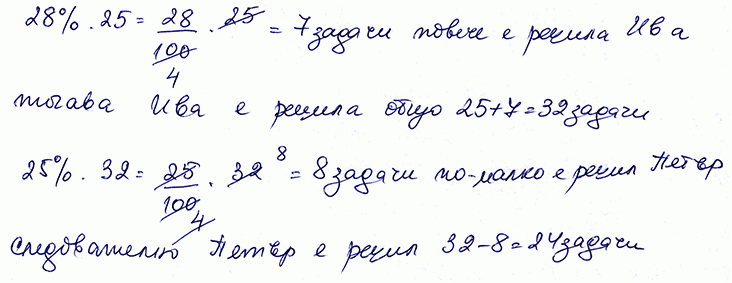 28% . 25 = 28/100 . 25 = 7 задачи повече е решила Ива
4
тогава Ива е решила общо 25+7=32 задачи
25% . 32 = 25/100 . 32 8 = 8 задачи по-малко е решил Петър
4
следователно Петър е решил 32-8=24 задачи